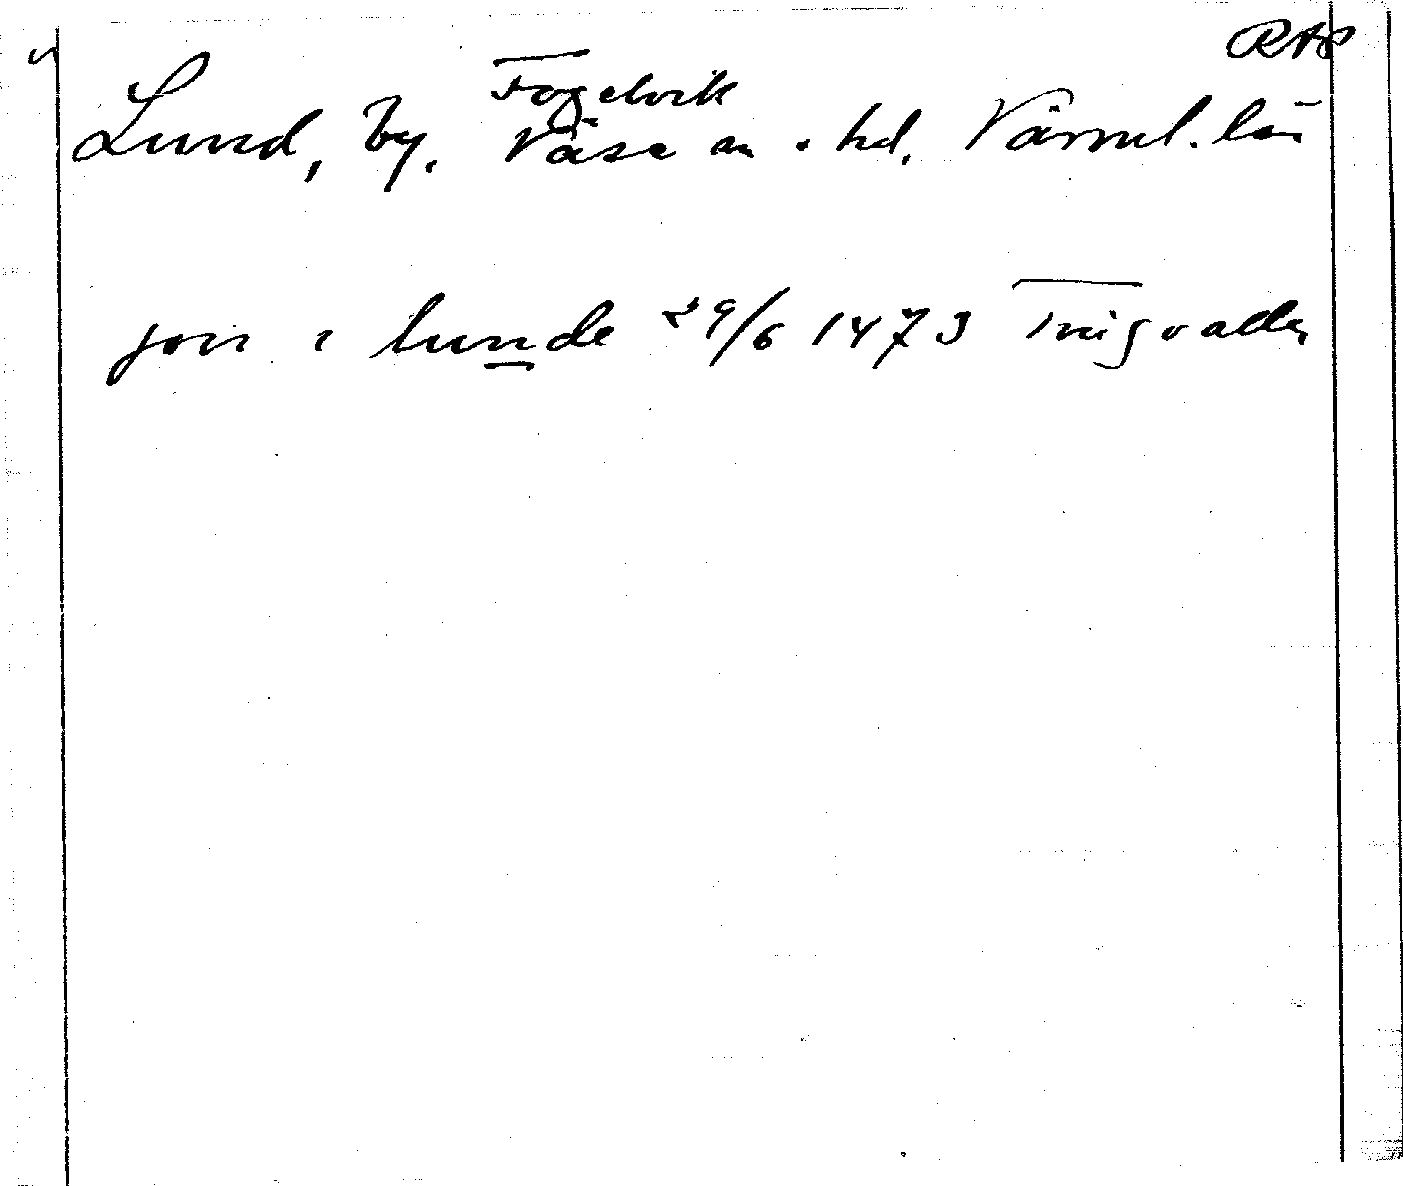 RAP
Fogelvik
Lund, by. Väse sn o. hd. Värml. län
jon i lunde 29/6 1473 Tingvalla